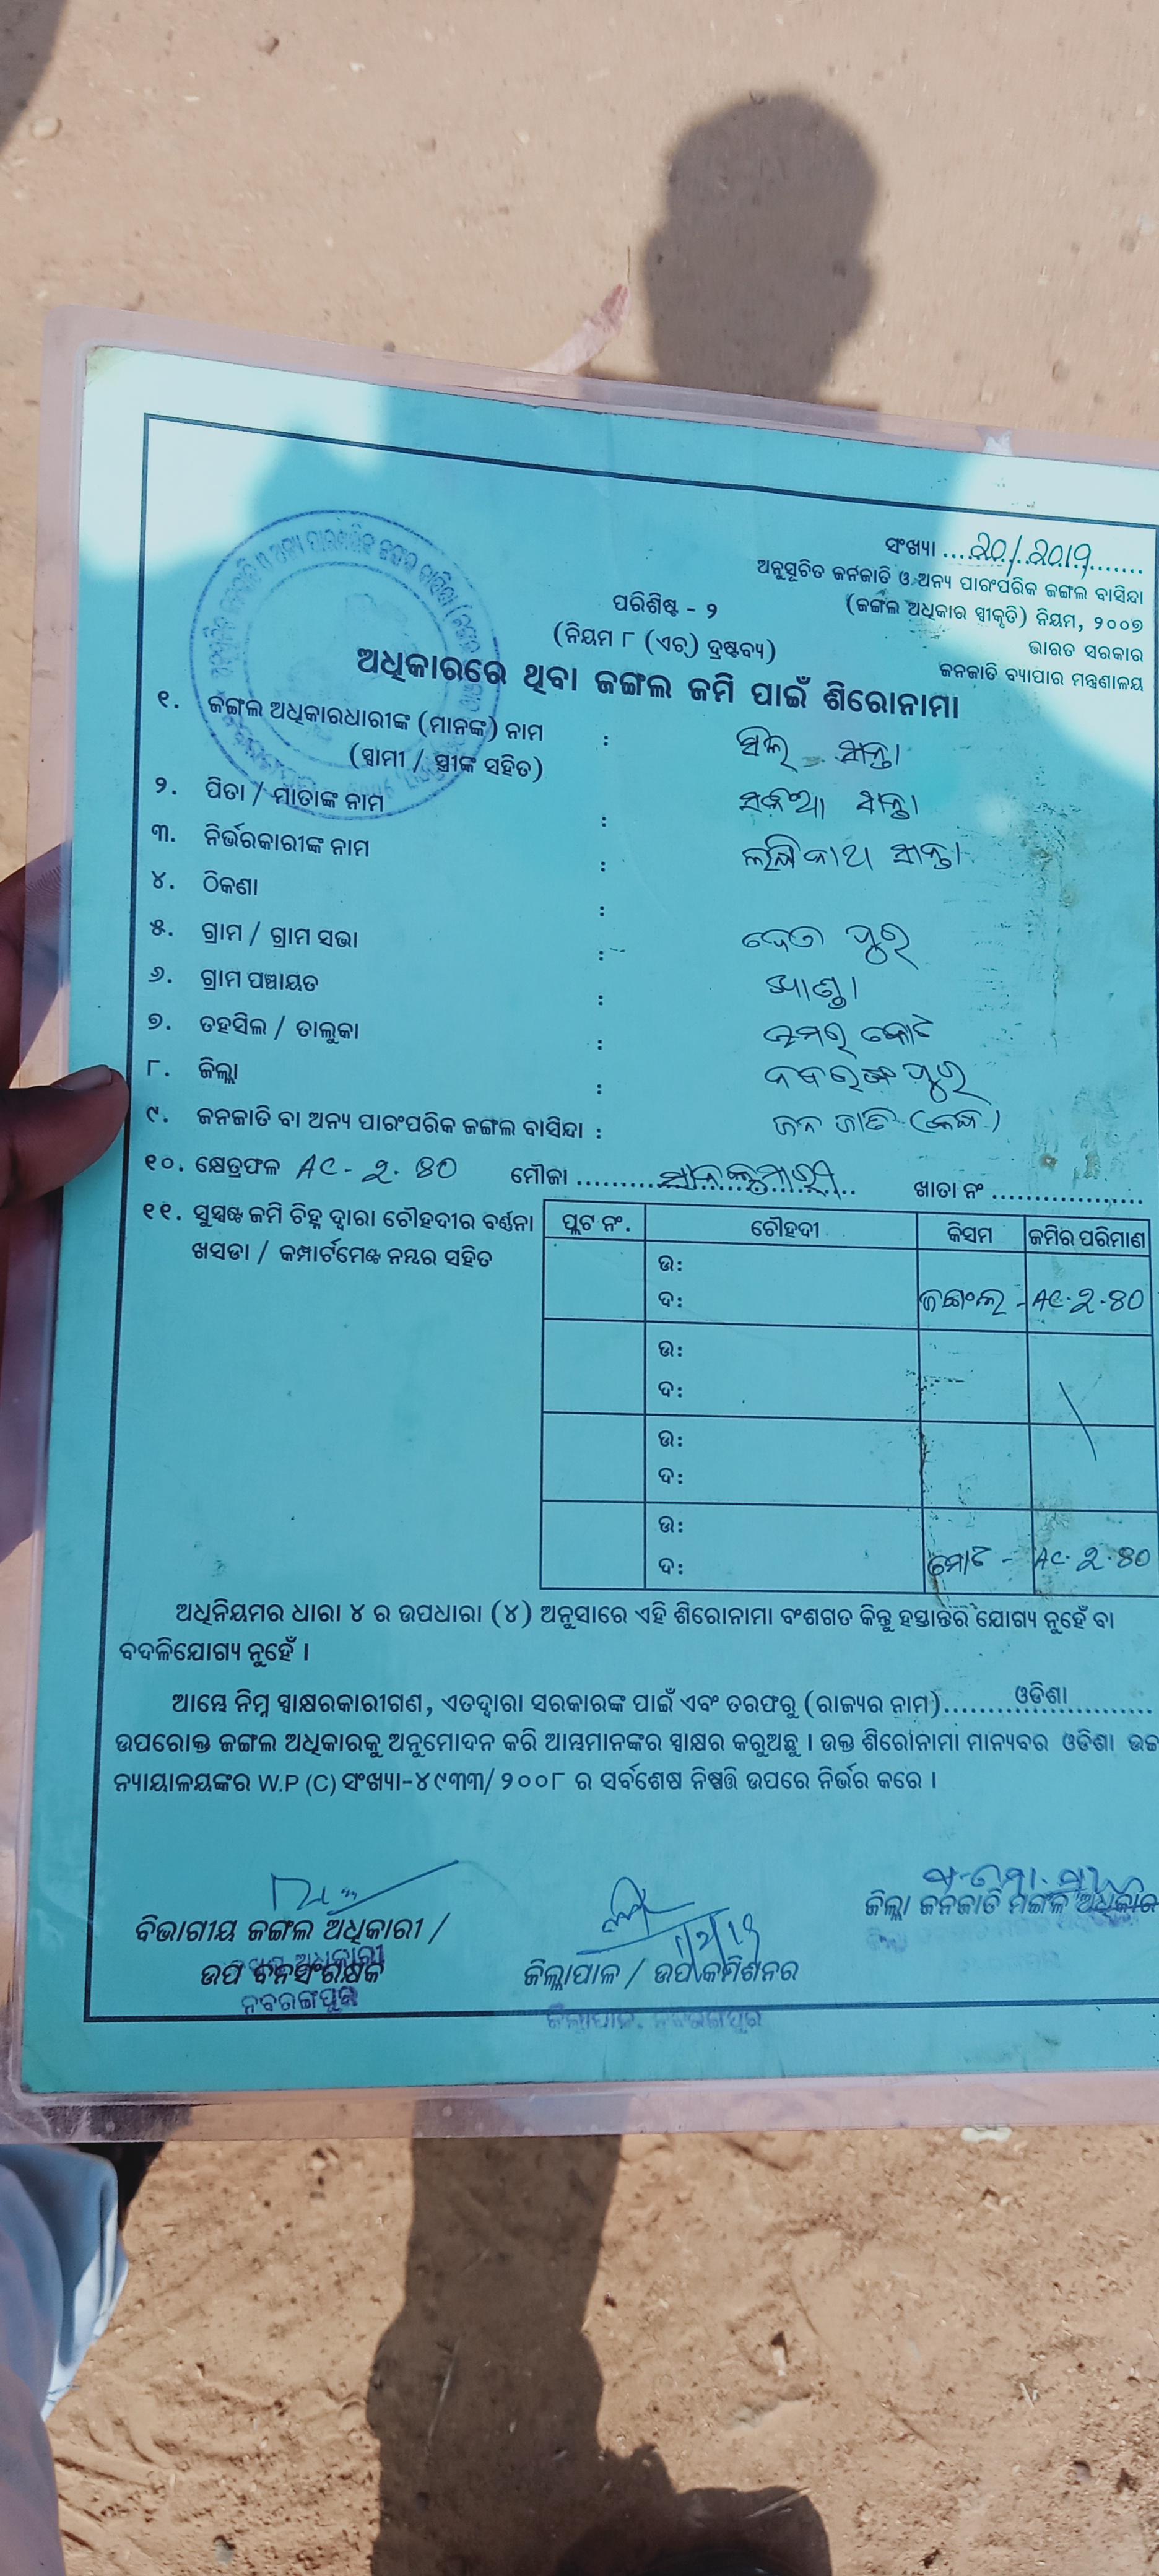 ସଂଖ୍ୟା ....20/2019.......
ଅନୁସୂଚିତ ଜନଜାତି ଓ ଅନ୍ୟ ପାରଂପରିକ ଜଙ୍ଗଲ ବାସିନ୍ଦା
(ଜଙ୍ଗଲ ଅଧିକାର ସ୍ୱୀକୃତି) ନିୟମ, ୨୦୦୭
ଭାରତ ସରକାର
ଜନଜାତି ବ୍ୟାପାର ମନ୍ତ୍ରଣାଳୟ
ପରିଶିଷ୍ଟ - ୨
(ନିୟମ ୮ (ଏଚ୍) ଦ୍ରଷ୍ଟବ୍ୟ)
ଅଧିକାରରେ ଥିବା ଜଙ୍ଗଲ ଜମି ପାଇଁ ଶିରୋନାମା
୧. ଜଙ୍ଗଲ ଅଧିକାରଧାରୀଙ୍କ (ମାନଙ୍କ) ନାମ :
(ସ୍ୱାମୀ / ସ୍ତ୍ରୀଙ୍କ ସହିତ)
୨. ପିତା / ମାତାଙ୍କ ନାମ :
୩. ନିର୍ଭରକାରୀଙ୍କ ନାମ :
୪. ଠିକଣା :
୫. ଗ୍ରାମ / ଗ୍ରାମ ସଭା :
୬. ଗ୍ରାମ ପଞ୍ଚାୟତ :
୭. ତହସିଲ / ତାଲୁକା : ଉମର କୋଟ
୮. ଜିଲ୍ଲା : ନବରଙ୍ଗ ପୁର
୯. ଜନଜାତି ବା ଅନ୍ୟ ପାରଂପରିକ ଜଙ୍ଗଲ ବାସିନ୍ଦା : ଜନ ଜାତି
୧୦. କ୍ଷେତ୍ରଫଳ AC - 2. 80 ମୌଜା ........ ଖାତା ନଂ ..................
୧୧. ସୁସ୍ପଷ୍ଟ ଜମି ଚିହ୍ନ ଦ୍ୱାରା ଚୌହଦୀର ବର୍ଣ୍ଣନା
ଖସଡା / କମ୍ପାର୍ଟମେଣ୍ଟ ନମ୍ବର ସହିତ
ପ୍ଲଟ ନଂ. ଚୌହଦୀ କିସମ ଜମିର ପରିମାଣ
ଉ:
ଦ: ଜଙ୍ଗଲ - AC. 2.80
ଉ:
ଦ:
ଉ:
ଦ:
ଉ:
ଦ: ମୋଟ - AC. 2.80
ଅଧିନିୟମର ଧାରା ୪ ର ଉପଧାରା (୪) ଅନୁସାରେ ଏହି ଶିରୋନାମା ବଂଶଗତ କିନ୍ତୁ ହସ୍ତାନ୍ତର ଯୋଗ୍ୟ ନୁହେଁ ବା
ବଦଳିଯୋଗ୍ୟ ନୁହେଁ ।
ଆମ୍ଭେ ନିମ୍ନ ସ୍ୱାକ୍ଷରକାରୀଗଣ, ଏତଦ୍ୱାରା ସରକାରଙ୍କ ପାଇଁ ଏବଂ ତରଫରୁ (ରାଜ୍ୟର ନାମ)........ଓଡିଶା........
ଉପରୋକ୍ତ ଜଙ୍ଗଲ ଅଧିକାରକୁ ଅନୁମୋଦନ କରି ଆମ୍ଭମାନଙ୍କର ସ୍ୱାକ୍ଷର କରୁଅଛୁ । ଉକ୍ତ ଶିରୋନାମା ମାନ୍ୟବର ଓଡିଶା ଉଚ୍ଚ
ନ୍ୟାୟାଳୟଙ୍କର W.P (C) ସଂଖ୍ୟା-୪୯୩୩/ ୨୦୦୮ ର ସର୍ବଶେଷ ନିଷ୍ପତ୍ତି ଉପରେ ନିର୍ଭର କରେ ।
ଜିଲ୍ଲା ଜନଜାତି ମଙ୍ଗଳ ଅଧିକାରୀ
ବିଭାଗୀୟ ଜଙ୍ଗଲ ଅଧିକାରୀ /
ଉପ ବନସଂରକ୍ଷକ
ଜିଲ୍ଲାପାଳ / ଉପ କମିଶନର
ନବରଙ୍ଗପୁର
ଜିଲ୍ଲାପାଳ, ନବରଙ୍ଗପୁର